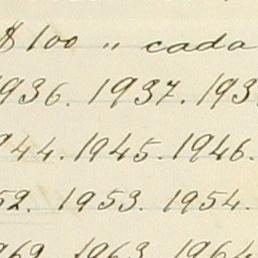 $ 100 " cada
1936. 1937. 193
944. 1945. 1946.
52. 1953. 1954.
1963. 1964